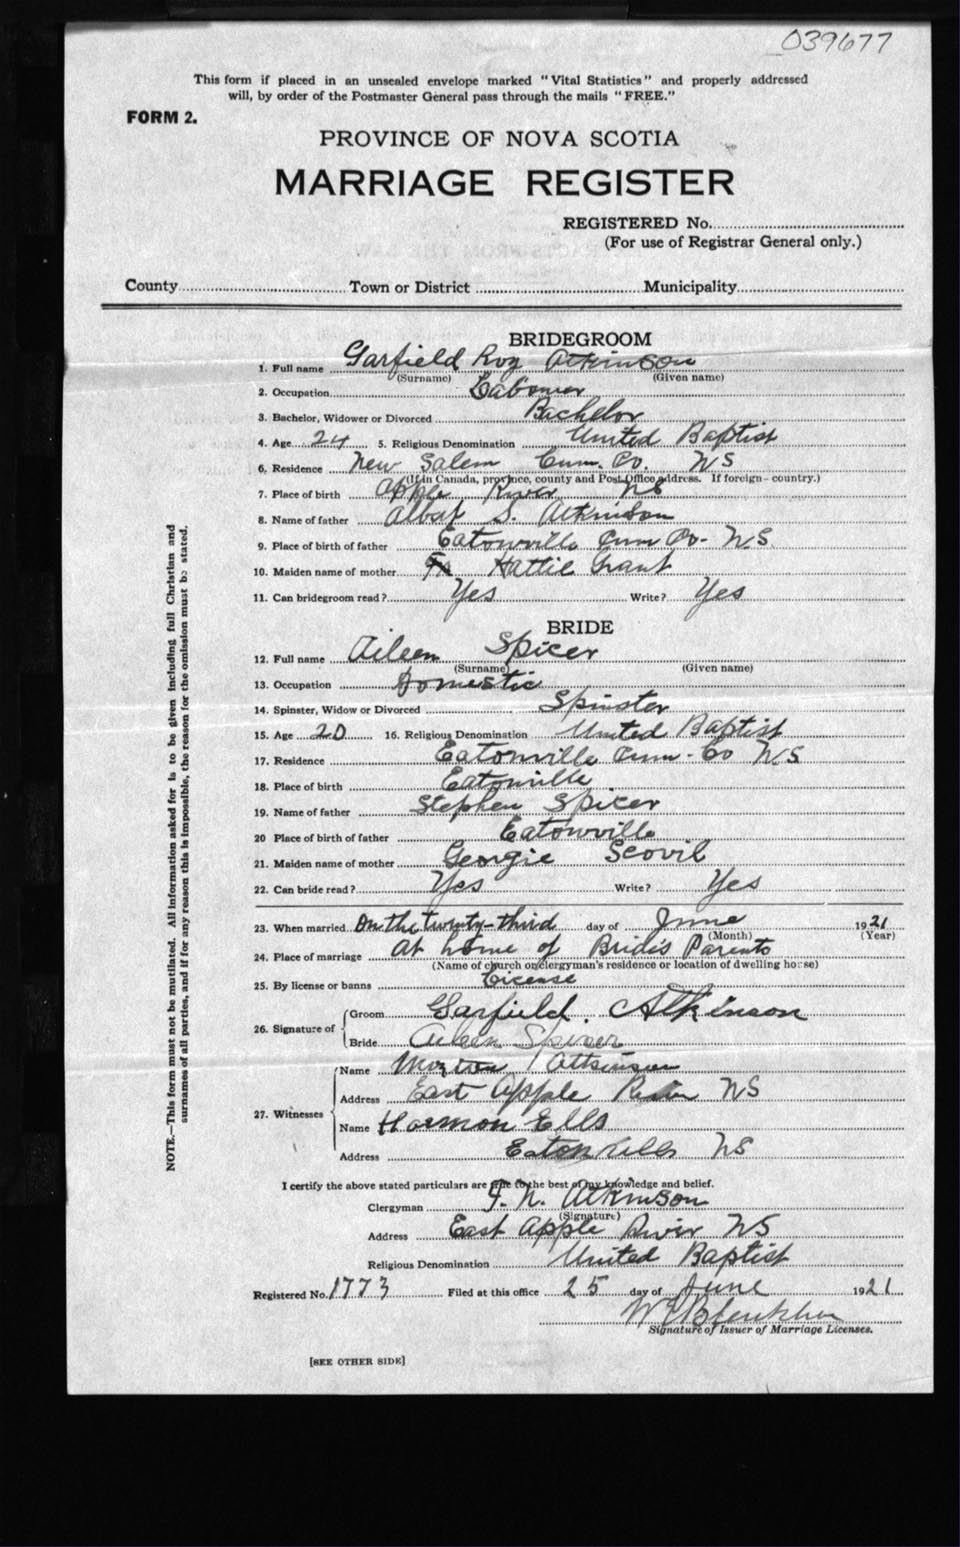 039677
This form if placed in an unsealed envelope marked "Vital Statistics" and properly addressed
will, by order of the Postmaster General pass through the mails "FREE."
FORM 2.
PROVINCE OF NOVA SCOTIA
MARRIAGE REGISTER
REGISTERED No.
(For use of Registrar General only.)
County Town or District Municipality
BRIDEGROOM
1. Full name Garfield Roy Atkinson
(Surname) (Given name)
2. Occupation Labourer
3. Bachelor, Widower or Divorced Bachelor
4. Age 24 5. Religious Denomination United Baptist
6. Residence New Salem Cum. Co. NS
(If in Canada, province, county and Post Office address. If foreign—country.)
7. Place of birth Apple River NS
8. Name of father Albert S. Atkinson
9. Place of birth of father Eatonville Cum Co- N.S.
10. Maiden name of mother Hattie Grant
11. Can bridegroom read? Yes Write? Yes
BRIDE
12. Full name Aileen Spicer
(Surname) (Given name)
13. Occupation Domestic
14. Spinster, Widow or Divorced Spinster
15. Age 20 16. Religious Denomination United Baptist
17. Residence Eatonville Cum-Co N.S
18. Place of birth Eatonville
19. Name of father Stephen Spicer
20 Place of birth of father Eatonville
21. Maiden name of mother Georgie Scovil
22. Can bride read? Yes Write? Yes
23. When married On the twenty-third day of June 1921
(Month) (Year)
24. Place of marriage At home of Brides Parents
(Name of church or clergyman's residence or location of dwelling house)
25. By license or banns License
26. Signature of Groom Garfield. Atkinson
Bride Aileen Spicer
27. Witnesses Name Morton Atkinson
Address East Apple River NS
Name Harmon Ells
Address Eatonville NS
I certify the above stated particulars are true to the best of my knowledge and belief.
Clergyman F. N. Atkinson
(Signature)
Address East Apple River NS
Religious Denomination United Baptist
Registered No. 1773 Filed at this office 25 day of June 1921
Signature of Issuer of Marriage Licenses.
[SEE OTHER SIDE]
NOTE.—This form must not be mutilated. All information asked for is to be given including full Christian and
surnames of all parties, and if for any reason this is impossible, the reason for the omission must be stated.